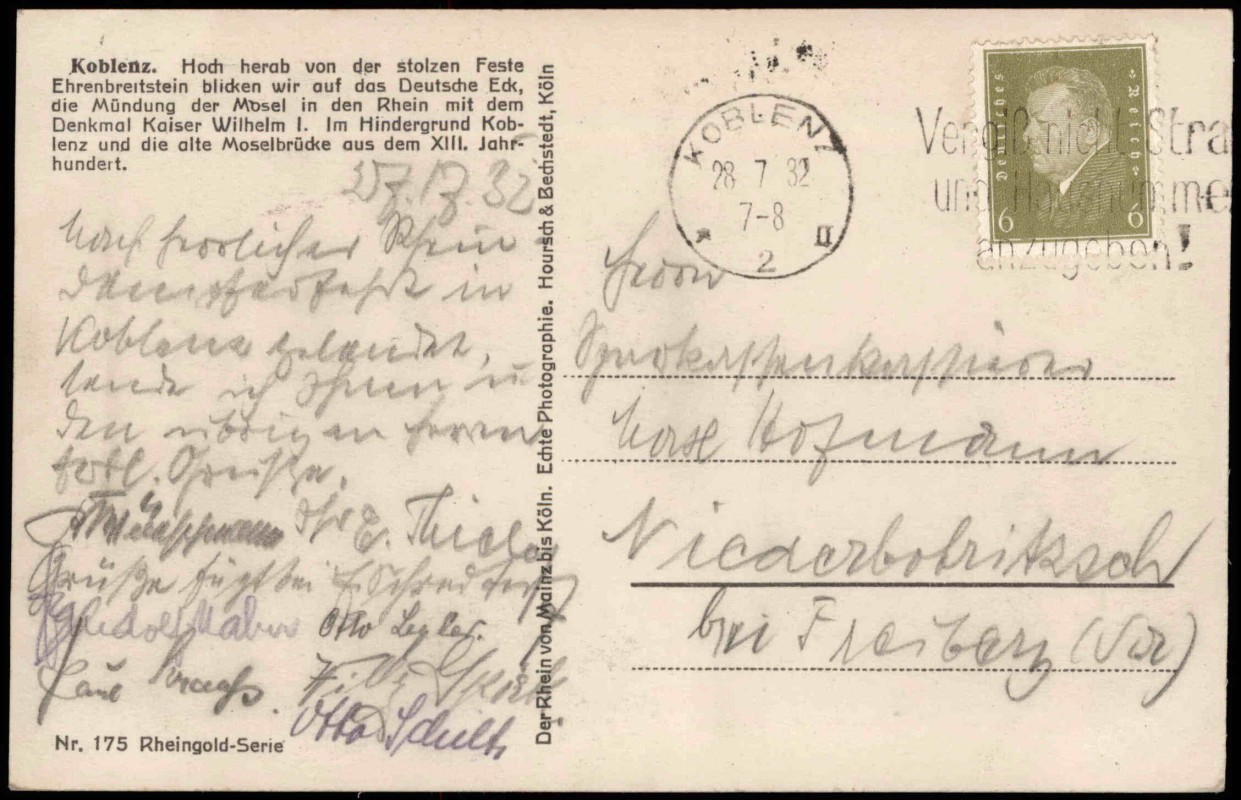 Koblenz. Hoch herab von der stolzen Feste
Ehrenbreitstein blicken wir auf das Deutsche Eck,
die Mündung der Mosel in den Rhein mit dem
Denkmal Kaiser Wilhelm I. Im Hindergrund Kob-
lenz und die alte Moselbrücke aus dem XIII. Jahr-
hundert.
27.7.32
Nach herrlicher Rhein
dampferfahrt in
Koblenz gelandet,
sende ich Ihnen u.
den übrigen Herren
herzl. Grüße.
Ihr E. Thiele
Grüße fügt bei
Rudolf
Otto
Paul
Otto Schultz
Nr. 175 Rheingold-Serie
Der Rhein von Mainz bis Köln. Echte Photographie. Hoursch & Bechstedt, Köln
KOBLENZ
28 7 32
7-8
* 2 II
Vergiß nicht Stra
und Hausnumme
anzugeben!
Deutsches Reich
6 6
Herrn
Sparkassenkassierer
Karl Hofmann
Niederbobritzsch
bei Freiberg (Sa)